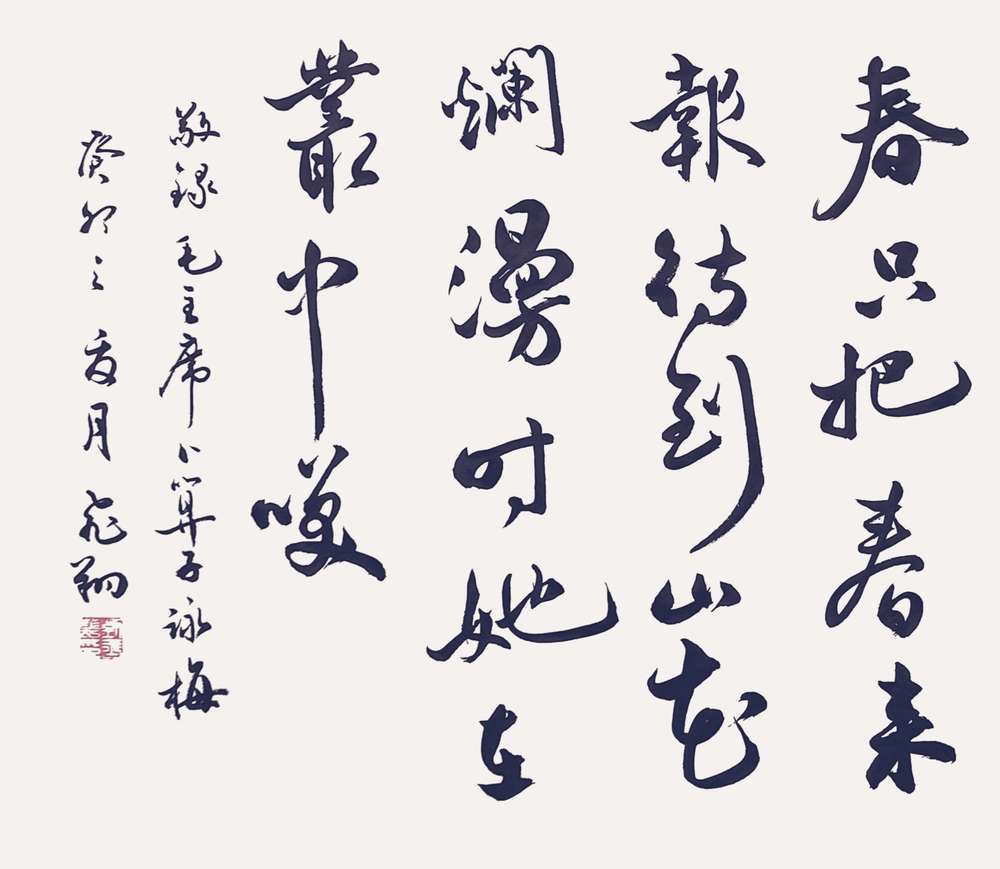 春只把春来
報待到山花
爛漫时她在
叢中笑
敬録毛主席卜算子詠梅
癸卯之夏月飛翔